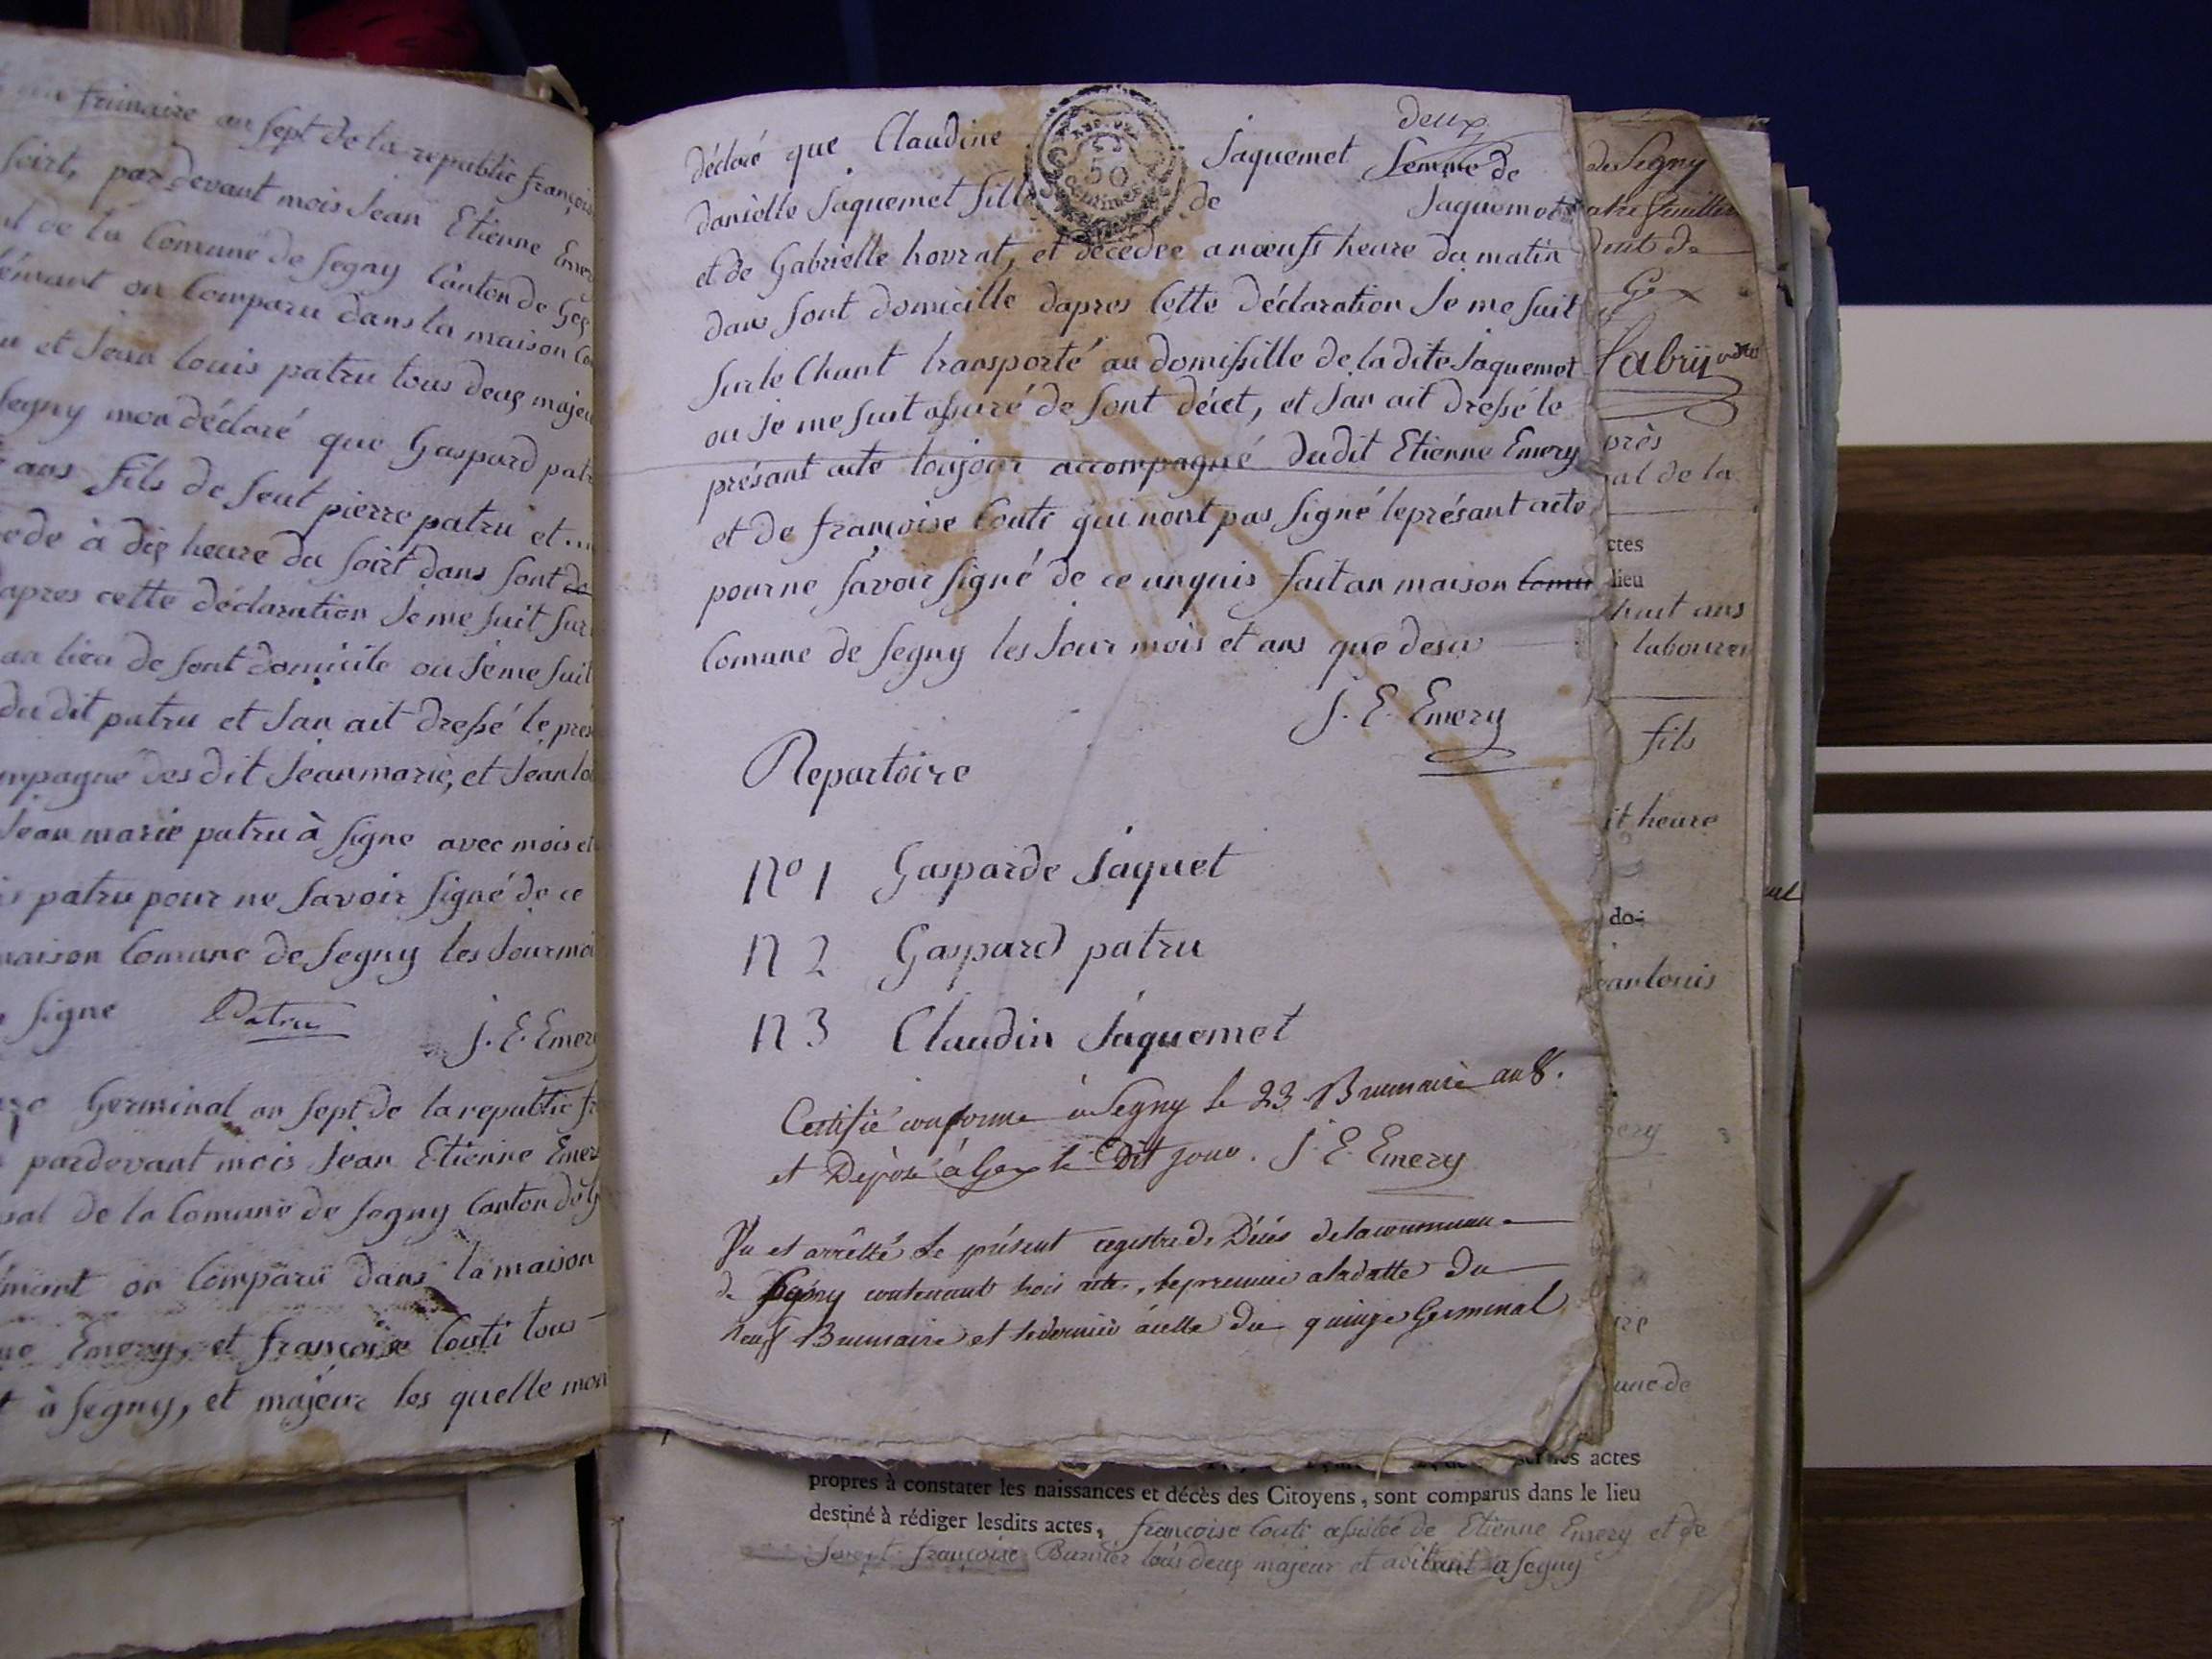 frimaire an sept de la republic françois
soirt, par devant mois Jean Etienne Emer
de la Comune de segny Canton de Gex
on Comparu dans la maison Co
et Jean louis patru tous deux majeu
segny mon déclaré que Gaspard patr
ans fils de feut pierre patru et
ede à dix heure du soirt dans sont do
apres cette déclaration Je me suit sur
au lieu de sont domicile ou Je me suit
du dit patru et Jan ait dressé le pres
mpagné des dit Jean marie, et Jean lo
Jean marie patru à signe avec mois et
patru pour ne savoir signé de ce
maison Comune de segny les Jour moi
signe Patru J. E. Emery
Germinal an sept de la republic fr
pardevant mois Jean Etienne Emer
pal de la Comune de segny Canton de G
mant on Comparu dans la maison
Emery, et françoise Couti tous
à segny, et majeur les quelle mon
deux
déclaré que Claudine Jaquemet femme de
danielle Jaquemet fille de Jaquemot
et de Gabrielle hovrat, et décédée a nœufs heure du matin
dans sont domicille dapres Cette déclaration Je me suit
sur le Chant transporté au domissille de la dite Jaquemet
ou Je me suit assuré de sont décet, et Jan ait dressé le
présant acte toujour accompagné dudit Etienne Emery
et de françoise Couti qui nont pas signé le présant acte
pour ne savoir signé de ce anquis fait an maison Comu
Comune de segny les Jour mois et ans que desu
J. E. Emery
Repartoire
No 1 Gasparde Jaquet
N 2 Gaspard patru
N 3 Claudin Jaquemet
Certifié conforme à Segny le 23 Brumaire an 8.
et Déposé à Gex le dit jour. J. E. Emery
Vu et arrêtté le présent registre de Décès de la commune
de Segny contenant trois actes, le premier a la datte du
neuf Brumaire et le dernier à celle du quinze Germinal
de Segny
Gex
près
al de la
ctes
lieu
huit ans
laboureu
fils
it heure
do-
Jean louis
une de
actes
propres à constater les naissances et décès des Citoyens, sont comparus dans le lieu
destiné à rédiger lesdits actes, françoise Couti assistée de Etienne Emery et de
françoise Burnier tous deux majeur et abitant a segny